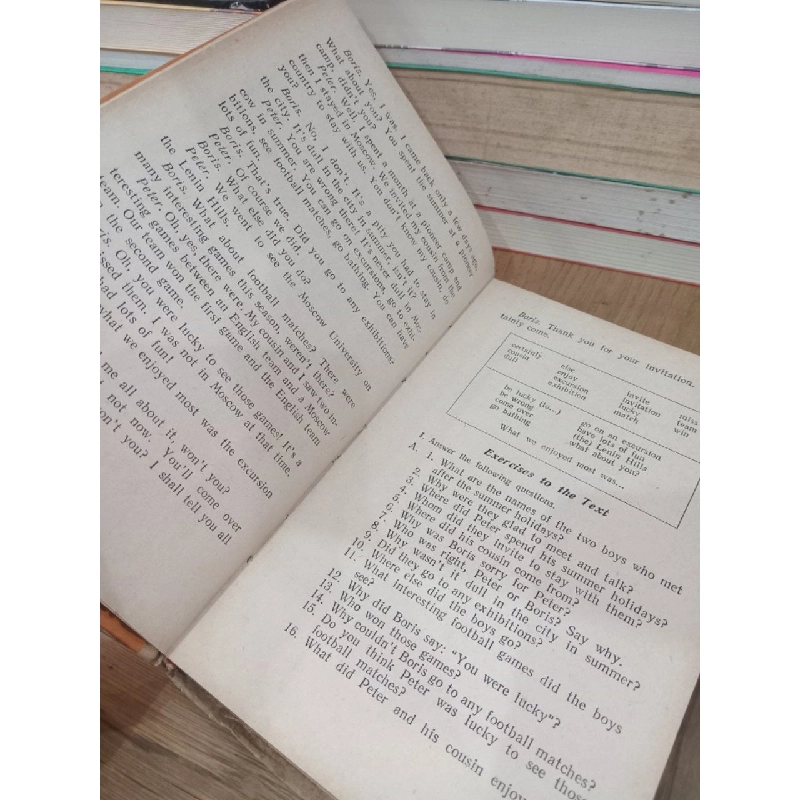 Boris. Yes, I was. I came back only a few days ago.
What about you? You spent the summer at a pioneer
camp, didn't you?
Peter. Well, I spent a month at a pioneer camp and
then I stayed in Moscow. We invited my cousin from the
country to stay with us. You don't know my cousin, do
you?
Boris. No, I don't. It's a pity you had to stay in
the city. It's dull in the city in summer, isn't it?
Peter. You are wrong there! It's never dull in Mos-
cow in summer. You can go on excursions, go to exhi-
bitions, see football matches, go bathing. You can have
lots of fun.
Boris. That's true. Did you go to any exhibitions?
Peter. Of course we did.
Boris. What else did you do?
Peter. We went to see the Moscow University on
the Lenin Hills.
Boris. What about football matches? There were
many interesting games this season, weren't there?
Peter. Oh, yes, there were. My cousin and I saw two in-
teresting games between an English team and a Moscow
team. Our team won the first game and the English team
the second game.
Oh, you were lucky to see those games! It's a
them. I was not in Moscow at that time.
had lots of fun!
what we enjoyed most was the excursion
me all about it, won't you?
not now. You'll come over
won't you? I shall tell you all
Boris. Thank you for your invitation.
tainly come.
certainly else invite miss
cousin enjoy invitation team
dull excursion lucky win
exhibition match
be lucky (to...) go on an excursion
be wrong have lots of fun
come over (the) Lenin Hills
go bathing what about you?
What we enjoyed most was...
Exercises to the Text
I. Answer the following questions.
A. 1. What are the names of the two boys who met
after the summer holidays?
2. Why were they glad to meet and talk?
3. Where did Peter spend his summer holidays?
4. Whom did they invite to stay with them?
5. Where did his cousin come from?
6. Why was Boris sorry for Peter?
7. Who was right, Peter or Boris? Say why.
8. Why wasn't it dull in the city in summer?
9. Did they go to any exhibitions?
10. Where else did the boys go?
11. What interesting football games did the boys
see?
12. Why did Boris say: "You were lucky"?
13. Who won those games?
14. Why couldn't Boris go to any football matches?
15. Do you think Peter was lucky to see those
football matches?
16. What did Peter and his cousin enjoy